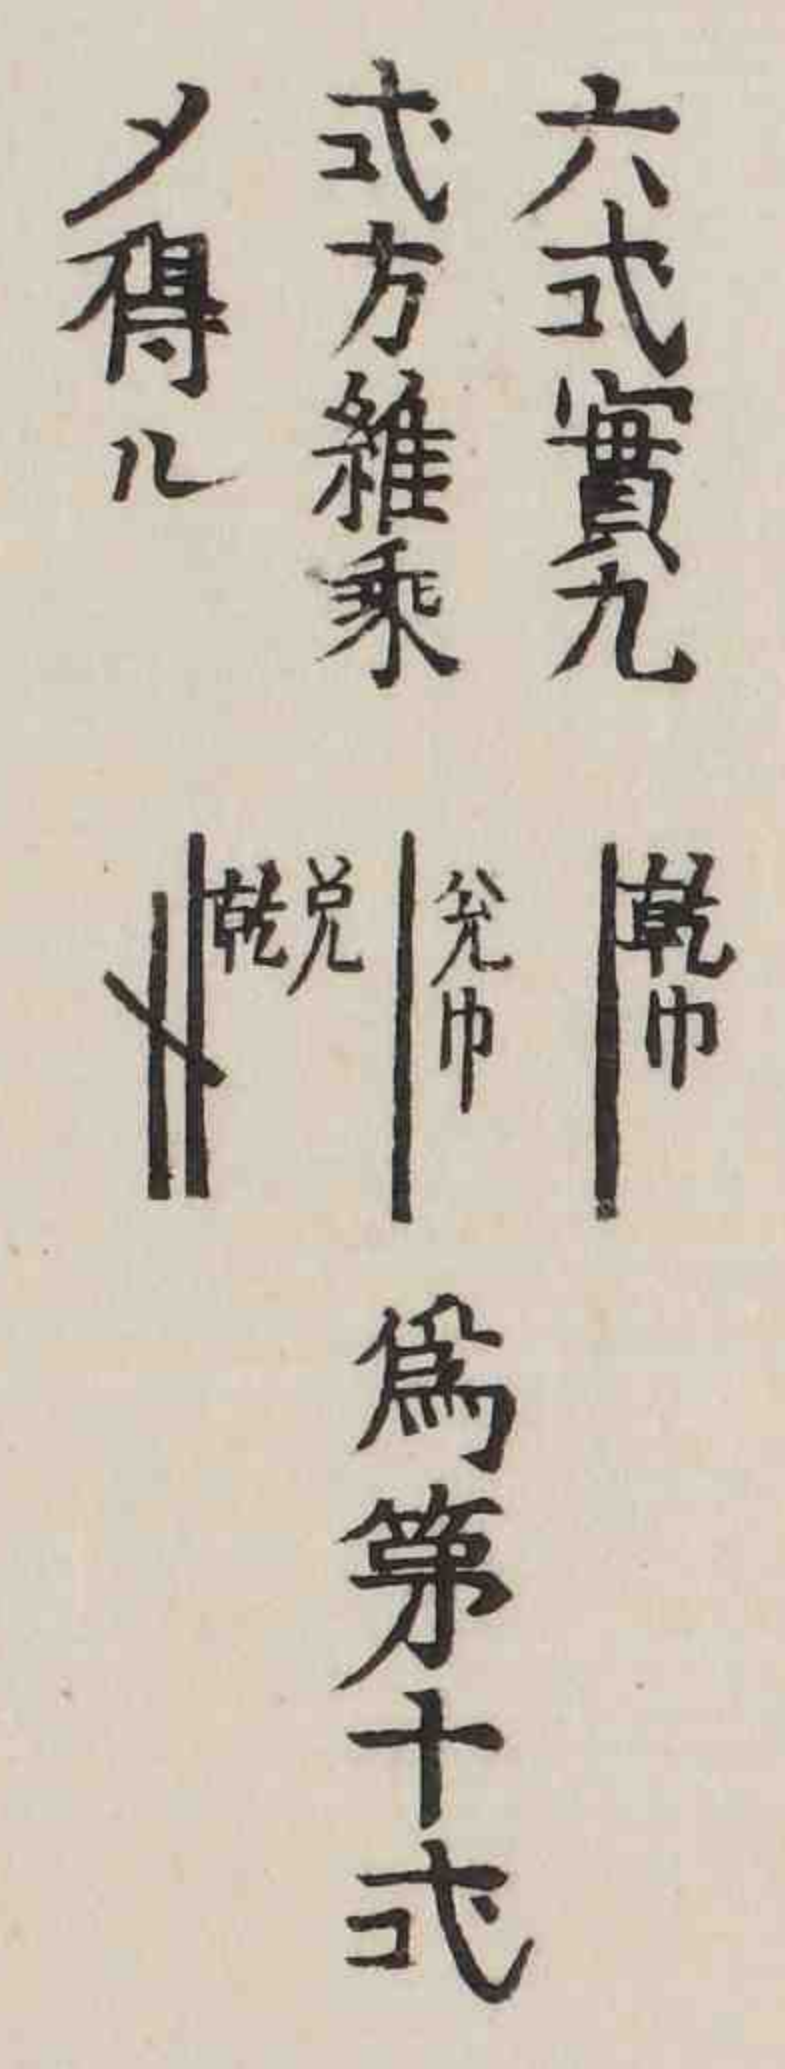 六式實九
式方維乘
〆得ル
乾巾
兊巾
兊
乾
爲第十式